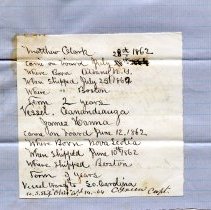 Matthew Clark
Came on board July 28th 1862
Where Born Albany N.Y.
When Shipped July 25th 1862
Where " Boston
Term 2 years
Vessel, Canandaigua
James Hanna
Came on board June 12, 1862
Where Born Nova Scotia
When Shipped June 10th 1862
Where Shipped Boston
Term 3 years
Vessel So. Carolina